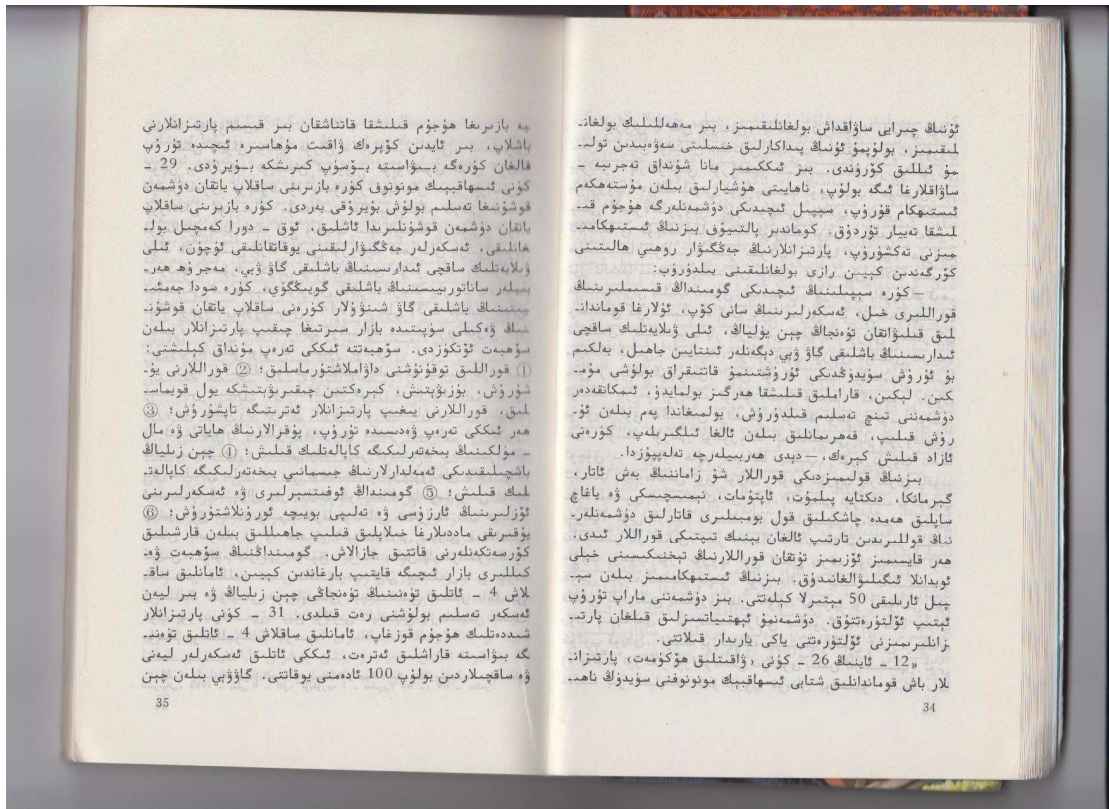 ئۇنىڭ چىرايى ساۋاقداش بولغانلىقىمىز، بىر مەھەللىلىك بولغانـ
لىقىمىز، بولۇپمۇ ئۇنىڭ پىداكارلىق خىسلىتى سەۋەبىدىن تولىـ
مۇ ئىللىق كۆرۈندى. بىز ئىككىمىز مانا شۇنداق تەجرىبە ـ
ساۋاقلارغا ئىگە بولۇپ، ناھايىتى ھۇشيارلىق بىلەن مۇستەھكەم
ئىستىھكام قۇرۇپ، سېپىل ئىچىدىكى دۈشمەنلەرگە ھۇجۇم قىـ
لىشقا تەييار تۇردۇق. كوماندىر پالتىيۇف بىزنىڭ ئىستىھكامىـ
مىزنى تەكشۈرۈپ، پارتىزانلارنىڭ جەڭگىۋار روھىي ھالىتىنى
كۆرگەندىن كېيىن رازى بولغانلىقىنى بىلدۈرۈپ:
— كۈرە سېپىلىنىڭ ئىچىدىكى گومىنداڭ قىسىملىرىنىڭ
قوراللىرى خىل، ئەسكەرلىرىنىڭ سانى كۆپ، ئۇلارغا قوماندانـ
لىق قىلىۋاتقان تۇەنجاڭ چېن يۇلياڭ، ئىلى ۋىلايەتلىك ساقچى
ئىدارىسىنىڭ باشلىقى گاۋ ۋېي دېگەنلەر ئىنتايىن جاھىل، بەلكىم
بۇ ئۇرۇش سۈيدۈڭدىكى ئۇرۇشتىنمۇ قاتتىقراق بولۇشى مۇمـ
كىن. لېكىن، قاراملىق قىلىشقا ھەرگىز بولمايدۇ، ئىمكانقەدەر
دۈشمەننى تىنچ تەسلىم قىلدۇرۇش، بولمىغاندا پەم بىلەن ئۇـ
رۇش قىلىپ، قەھرىمانلىق بىلەن ئالغا ئىلگىرىلەپ، كۈرەنى
ئازاد قىلىش كېرەك، — دېدى ھەربىيلەرچە تەلەپپۇزدا.
بىزنىڭ قولىمىزدىكى قوراللار شۇ زاماننىڭ بەش ئاتار،
گېرمانكا، دىكتايە پىلىمۇت، ئاپتۇمات، نېمىسچىسكى ۋە ياغاچ
ساپلىق ھەمدە چاشكىلىق قول بومبىلىرى قاتارلىق دۈشمەنلەرـ
نىڭ قوللىرىدىن تارتىپ ئالغان يېنىك تىپتىكى قوراللار ئىدى.
ھەر قايسىمىز ئۆزىمىز تۇتقان قوراللارنىڭ تېخنىكىسىنى خېلى
ئوبدانلا ئىگىلىۋالغانىدۇق. بىزنىڭ ئىستىھكامىمىز بىلەن سېـ
پىل ئارىلىقى 50 مېتىرلا كېلەتتى. بىز دۈشمەننى ماراپ تۇرۇپ
ئېتىپ ئۆلتۈرەتتۇق. دۈشمەنمۇ ئېھتىياتسىزلىق قىلغان پارتىـ
زانلىرىمىزنى ئۆلتۈرەتتى ياكى يارىدار قىلاتتى.
«12 ـ ئاينىڭ 26 ـ كۈنى ‹ۋاقىتلىق ھۆكۈمەت› پارتىزانـ
لار باش قوماندانلىق شتابى ئىسھاقبېك مونونوفنى سۈيدۈڭ ناھىـ
34
يە بازىرىغا ھۇجۇم قىلىشقا قاتناشقان بىر قىسىم پارتىزانلارنى
باشلاپ، بىر ئايدىن كۆپرەك ۋاقىت مۇھاسىرە ئىچىدە تۇرۇپ
قالغان كۈرەگە بىۋاسىتە بۆسۈپ كىرىشكە بۇيرۇدى. 29 ـ
كۈنى ئىسھاقبېك مونونوف كۈرە بازىرىنى ساقلاپ ياتقان دۈشمەن
قوشۇنىغا تەسلىم بولۇش بۇيرۇقى بەردى. كۈرە بازىرىنى ساقلاپ
ياتقان دۈشمەن قوشۇنلىرىدا ئاشلىق، ئوق ـ دورا كەمچىل بولـ
غانلىقى، ئەسكەرلەر جەڭگىۋارلىقىنى يوقاتقانلىقى ئۈچۈن، ئىلى
ۋىلايەتلىك ساقچى ئىدارىسىنىڭ باشلىقى گاۋ ۋېي، مەجرۇھ ھەرـ
بىيلەر ساناتورىيىسىنىڭ باشلىقى گويىڭگۈي، كۈرە سودا جەمئىـ
يىتىنىڭ باشلىقى گاۋ شىنۋۇلار كۈرەنى ساقلاپ ياتقان قوشۇنـ
نىڭ ۋەكىلى سۈپىتىدە بازار سىرتىغا چىقىپ پارتىزانلار بىلەن
سۆھبەت ئۆتكۈزدى. سۆھبەتتە ئىككى تەرەپ مۇنداق كېلىشتى:
① قوراللىق توقۇنۇشنى داۋاملاشتۇرماسلىق؛ ② قوراللارنى يۇـ
شۇرۇش، بۇزۇۋېتىش، كېرەكتىن چىقىرىۋېتىشكە يول قويماسـ
لىق. قوراللارنى يىغىپ پارتىزانلار ئەترىتىگە تاپشۇرۇش؛ ③
ھەر ئىككى تەرەپ ۋەدىسىدە تۇرۇپ، پۇقرالارنىڭ ھاياتى ۋە مال
ـ مۈلكىنىڭ بىخەتەرلىكىگە كاپالەتلىك قىلىش؛ ④ چېن زىلياڭ
باشچىلىقىدىكى ئەمەلدارلارنىڭ جىسمانىي بىخەتەرلىكىگە كاپالەتـ
لىك قىلىش؛ ⑤ گومىنداڭ ئوفىتسېرلىرى ۋە ئەسكەرلىرىنى
ئۆزلىرىنىڭ ئارزۇسى ۋە تەلىپى بويىچە ئورۇنلاشتۇرۇش؛ ⑥
يۇقىرىقى ماددىلارغا خىلاپلىق قىلىپ جاھىللىق بىلەن قارشىلىق
كۆرسەتكەنلەرنى قاتتىق جازالاش. گومىنداڭنىڭ سۆھبەت ۋەـ
كىللىرى بازار ئىچىگە قايتىپ بارغاندىن كېيىن، ئامانلىق ساقـ
لاش 4 ـ ئاتلىق تۇەنىنىڭ تۇەنجاڭى چېن زىلياڭ ۋە بىر ليەن
ئەسكەر تەسلىم بولۇشنى رەت قىلدى. 31 ـ كۈنى پارتىزانلار
شىددەتلىك ھۇجۇم قوزغاپ، ئامانلىق ساقلاش 4 ـ ئاتلىق تۇەنـ
گە بىۋاسىتە قاراشلىق ئەترەت، ئىككى ئاتلىق ئەسكەرلەر ليەنى
ۋە ساقچىلاردىن بولۇپ 100 ئادەمنى يوقاتتى. گاۋۋېي بىلەن چېن
35